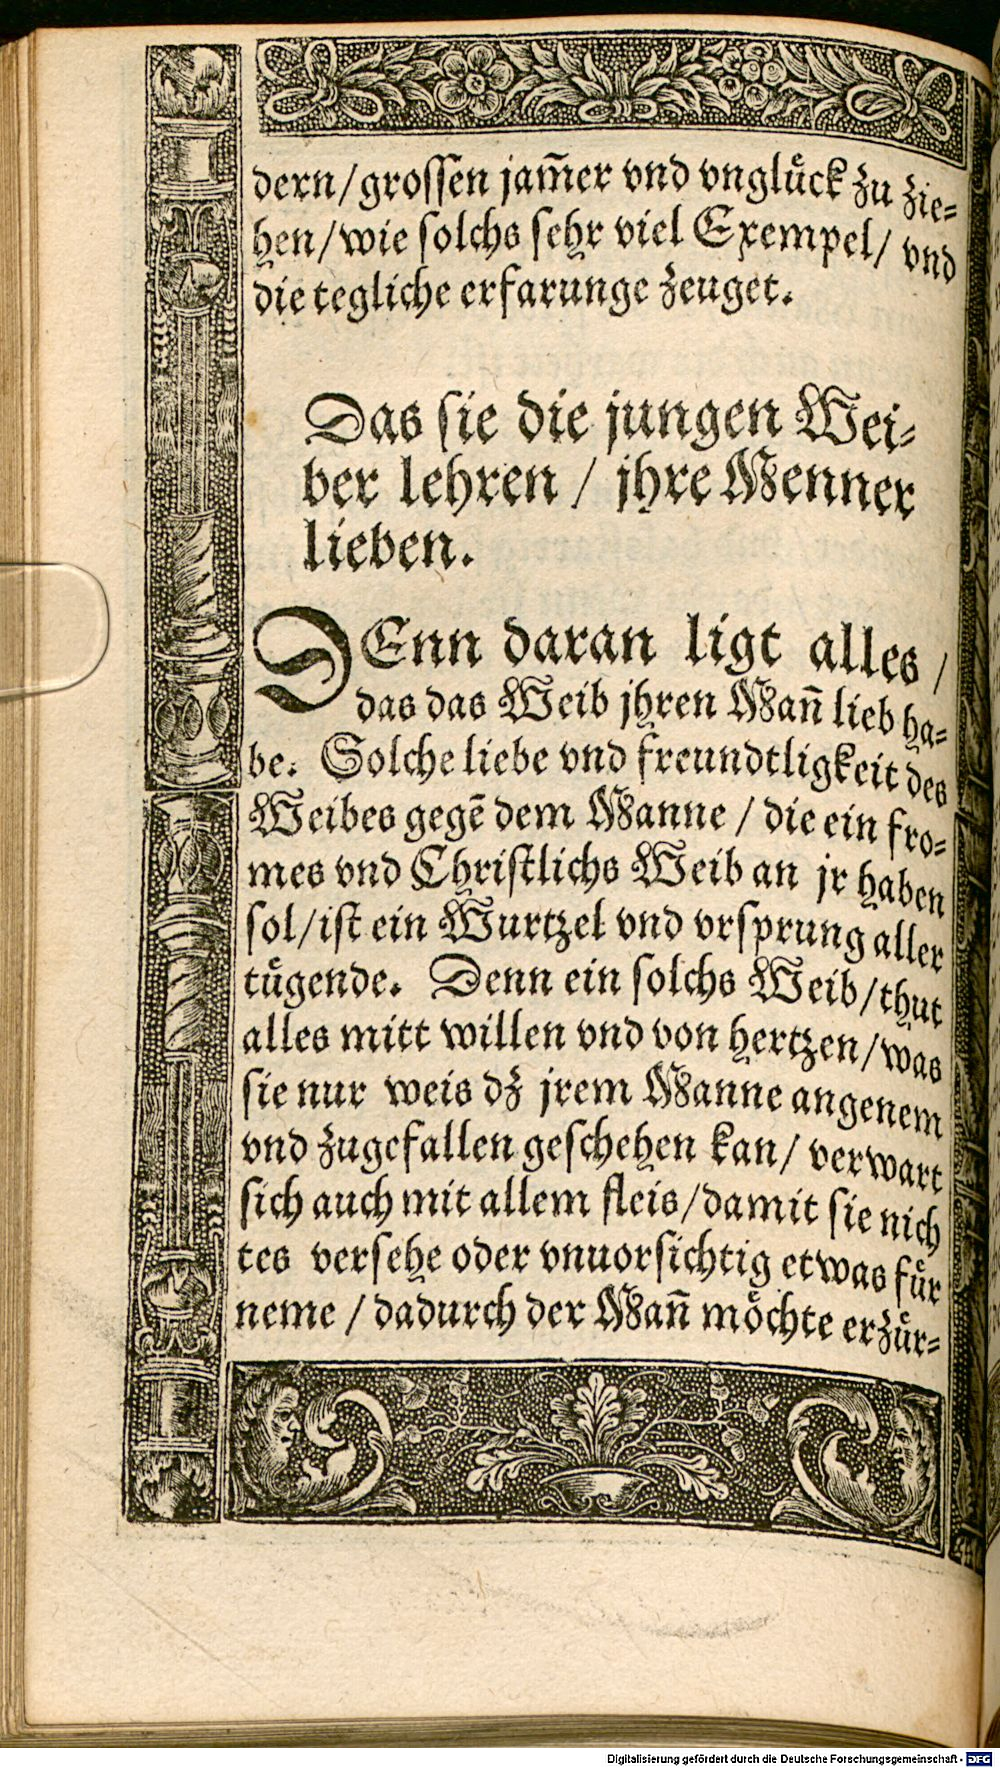 dern/grossen jam̄er vnd vnglůck zu zie⸗
hen/wie solchs sehr viel Exempel/ vnd
die tegliche erfarunge zeuget.
Das sie die jungen Wei⸗
ber lehren / jhre Menner
lieben.
DEnn daran ligt alles /
das das Weib jhren Man̄ lieb ha⸗
be. Solche liebe vnd freundtligkeit des
Weibes gegē dem Manne / die ein fro⸗
mes vnd Christlichs Weib an jr haben
sol/ist ein Wurtzel vnd vrsprung aller
tůgende. Denn ein solchs Weib/thut
alles mitt willen vnd von hertzen/was
sie nur weis dz jrem Manne angenem
vnd zugefallen geschehen kan/ verwart
sich auch mit allem fleis/damit sie nich
tes versehe oder vnuorsichtig etwas fůr
neme / dadurch der Man̄ mőchte erzůr⸗
Digitalisierung gefördert durch die Deutsche Forschungsgemeinschaft - DFG